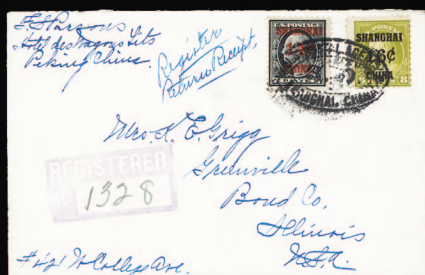 F. S. Parsons
Hotel des Wagons Lits
Peking China
Register
Return Receipt
U.S. POSTAGE
SHANGHAI
7 CENTS 7
SHANGHAI
16¢
CHINA
8
SHANGHAI, CHINA
Mrs. K. E. Grigg
Greenville
Bond Co.
Illinois
U.S.A.
REGISTERED
1328
# 421 W College Ave.